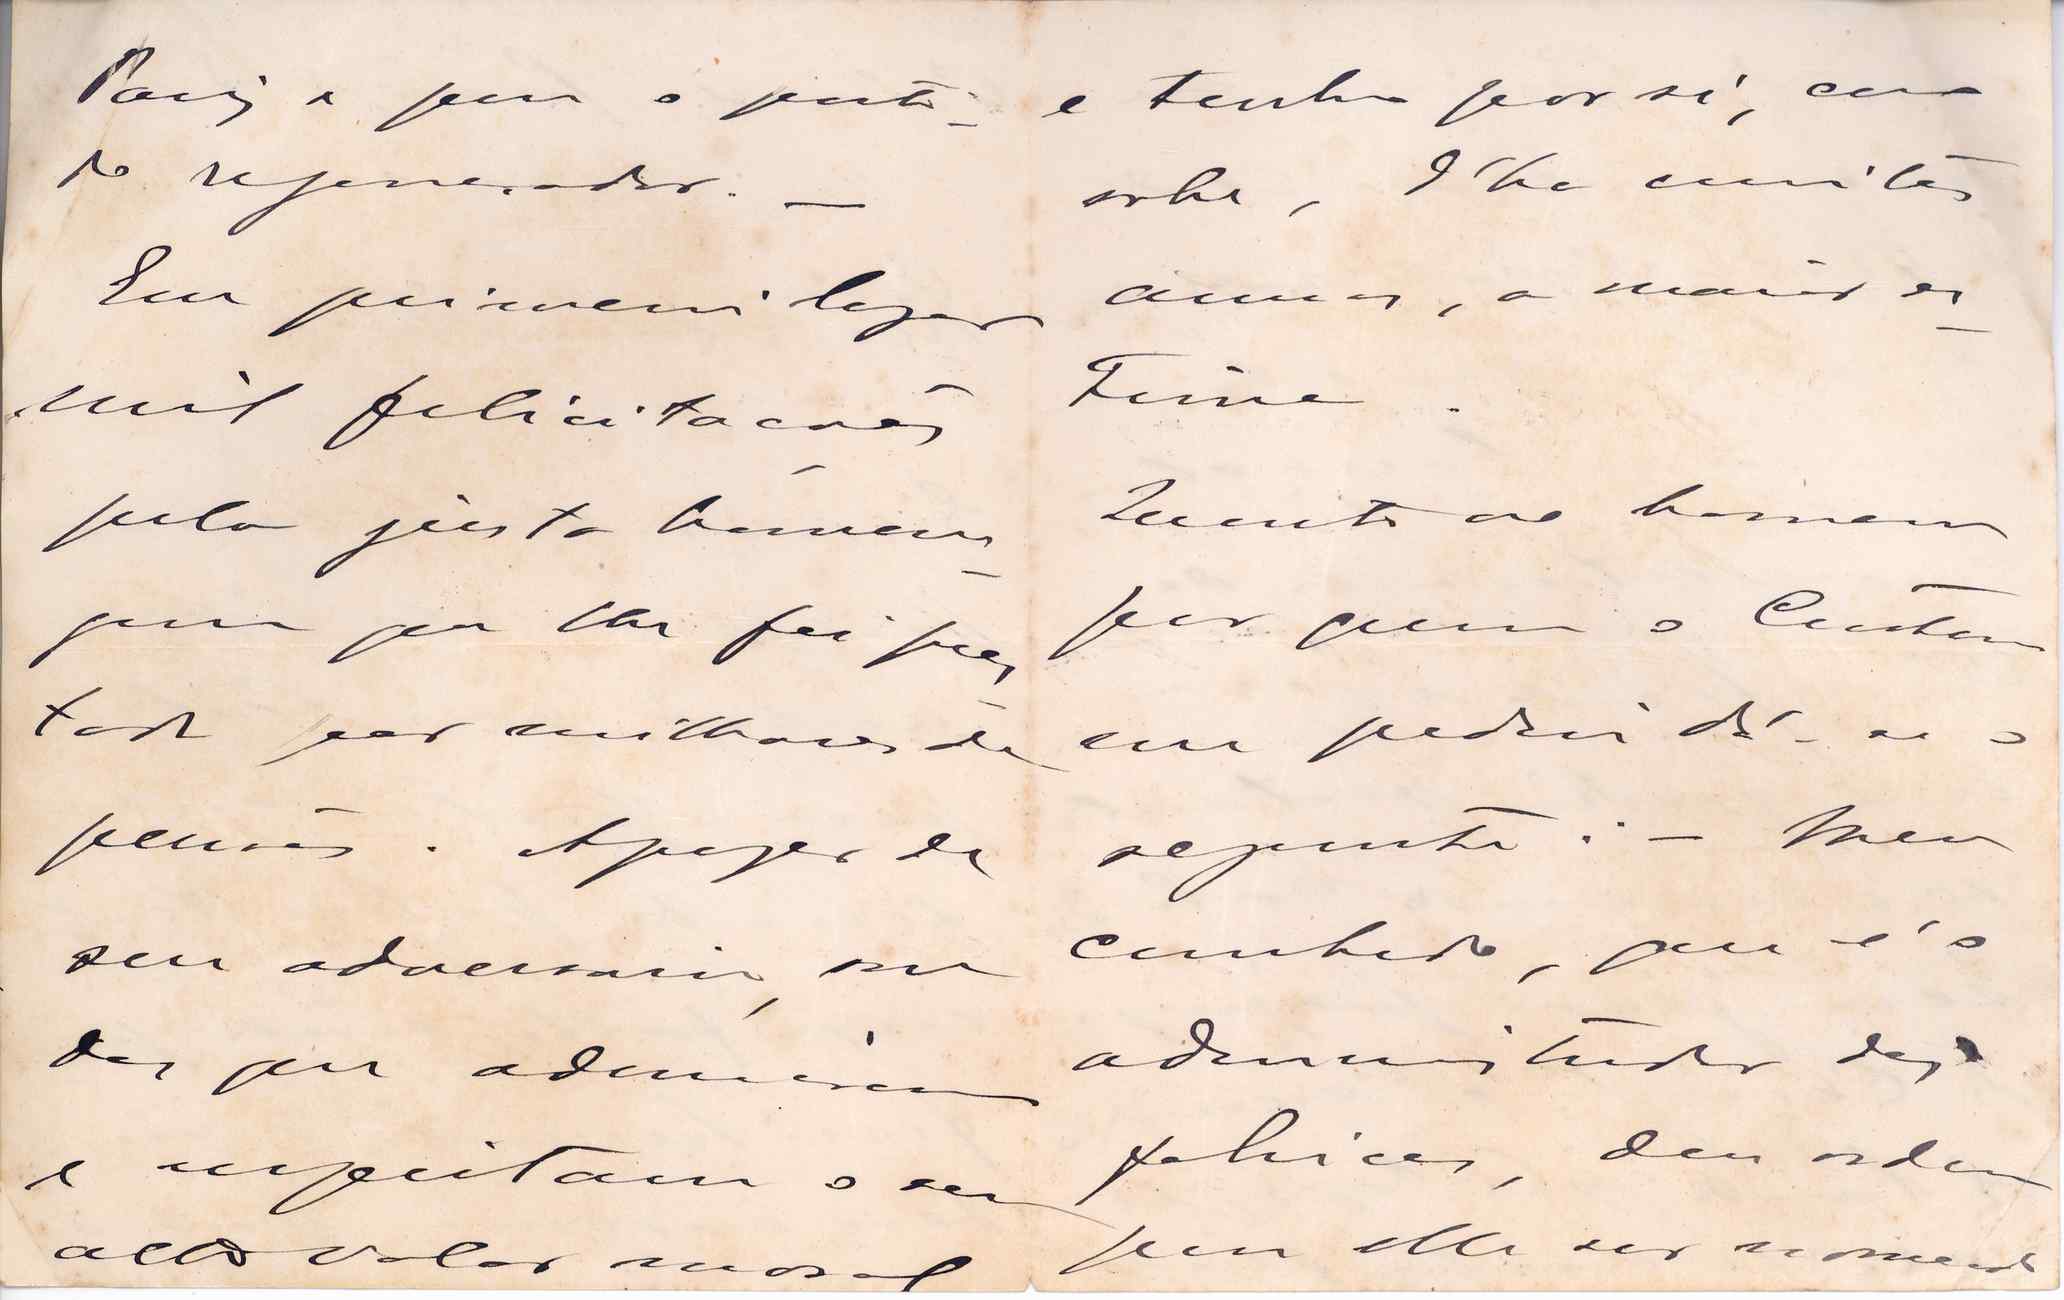 Paiz e para o parti-
do regenerador. —
Em primeiro logar
mil felicitações
pela justa homena-
gem que lhe foi pres-
tada por milhares de
pessoas. Apezar de
seu adversario, sou
dos que admiram
e respeitam o seu
alto valor moral
e tenho por si, como
sabe, d'ha muitos
annos, a maior es-
tima.
Quanto ao homem
por quem o
me pediu dá-se o
seguinte: — Meu
cunhado, que é o
administrador das
fabricas, deu ordem
para elle ser nomeado